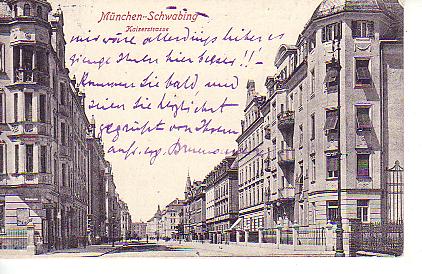 München-Schwabing
Kaiserstrasse
mir wäre allerdings lieber es
ginge Ihnen hier besser !!–
Kommen Sie bald und
seien Sie herzlichst
gegrüßt von Ihrem
aufr. erg.